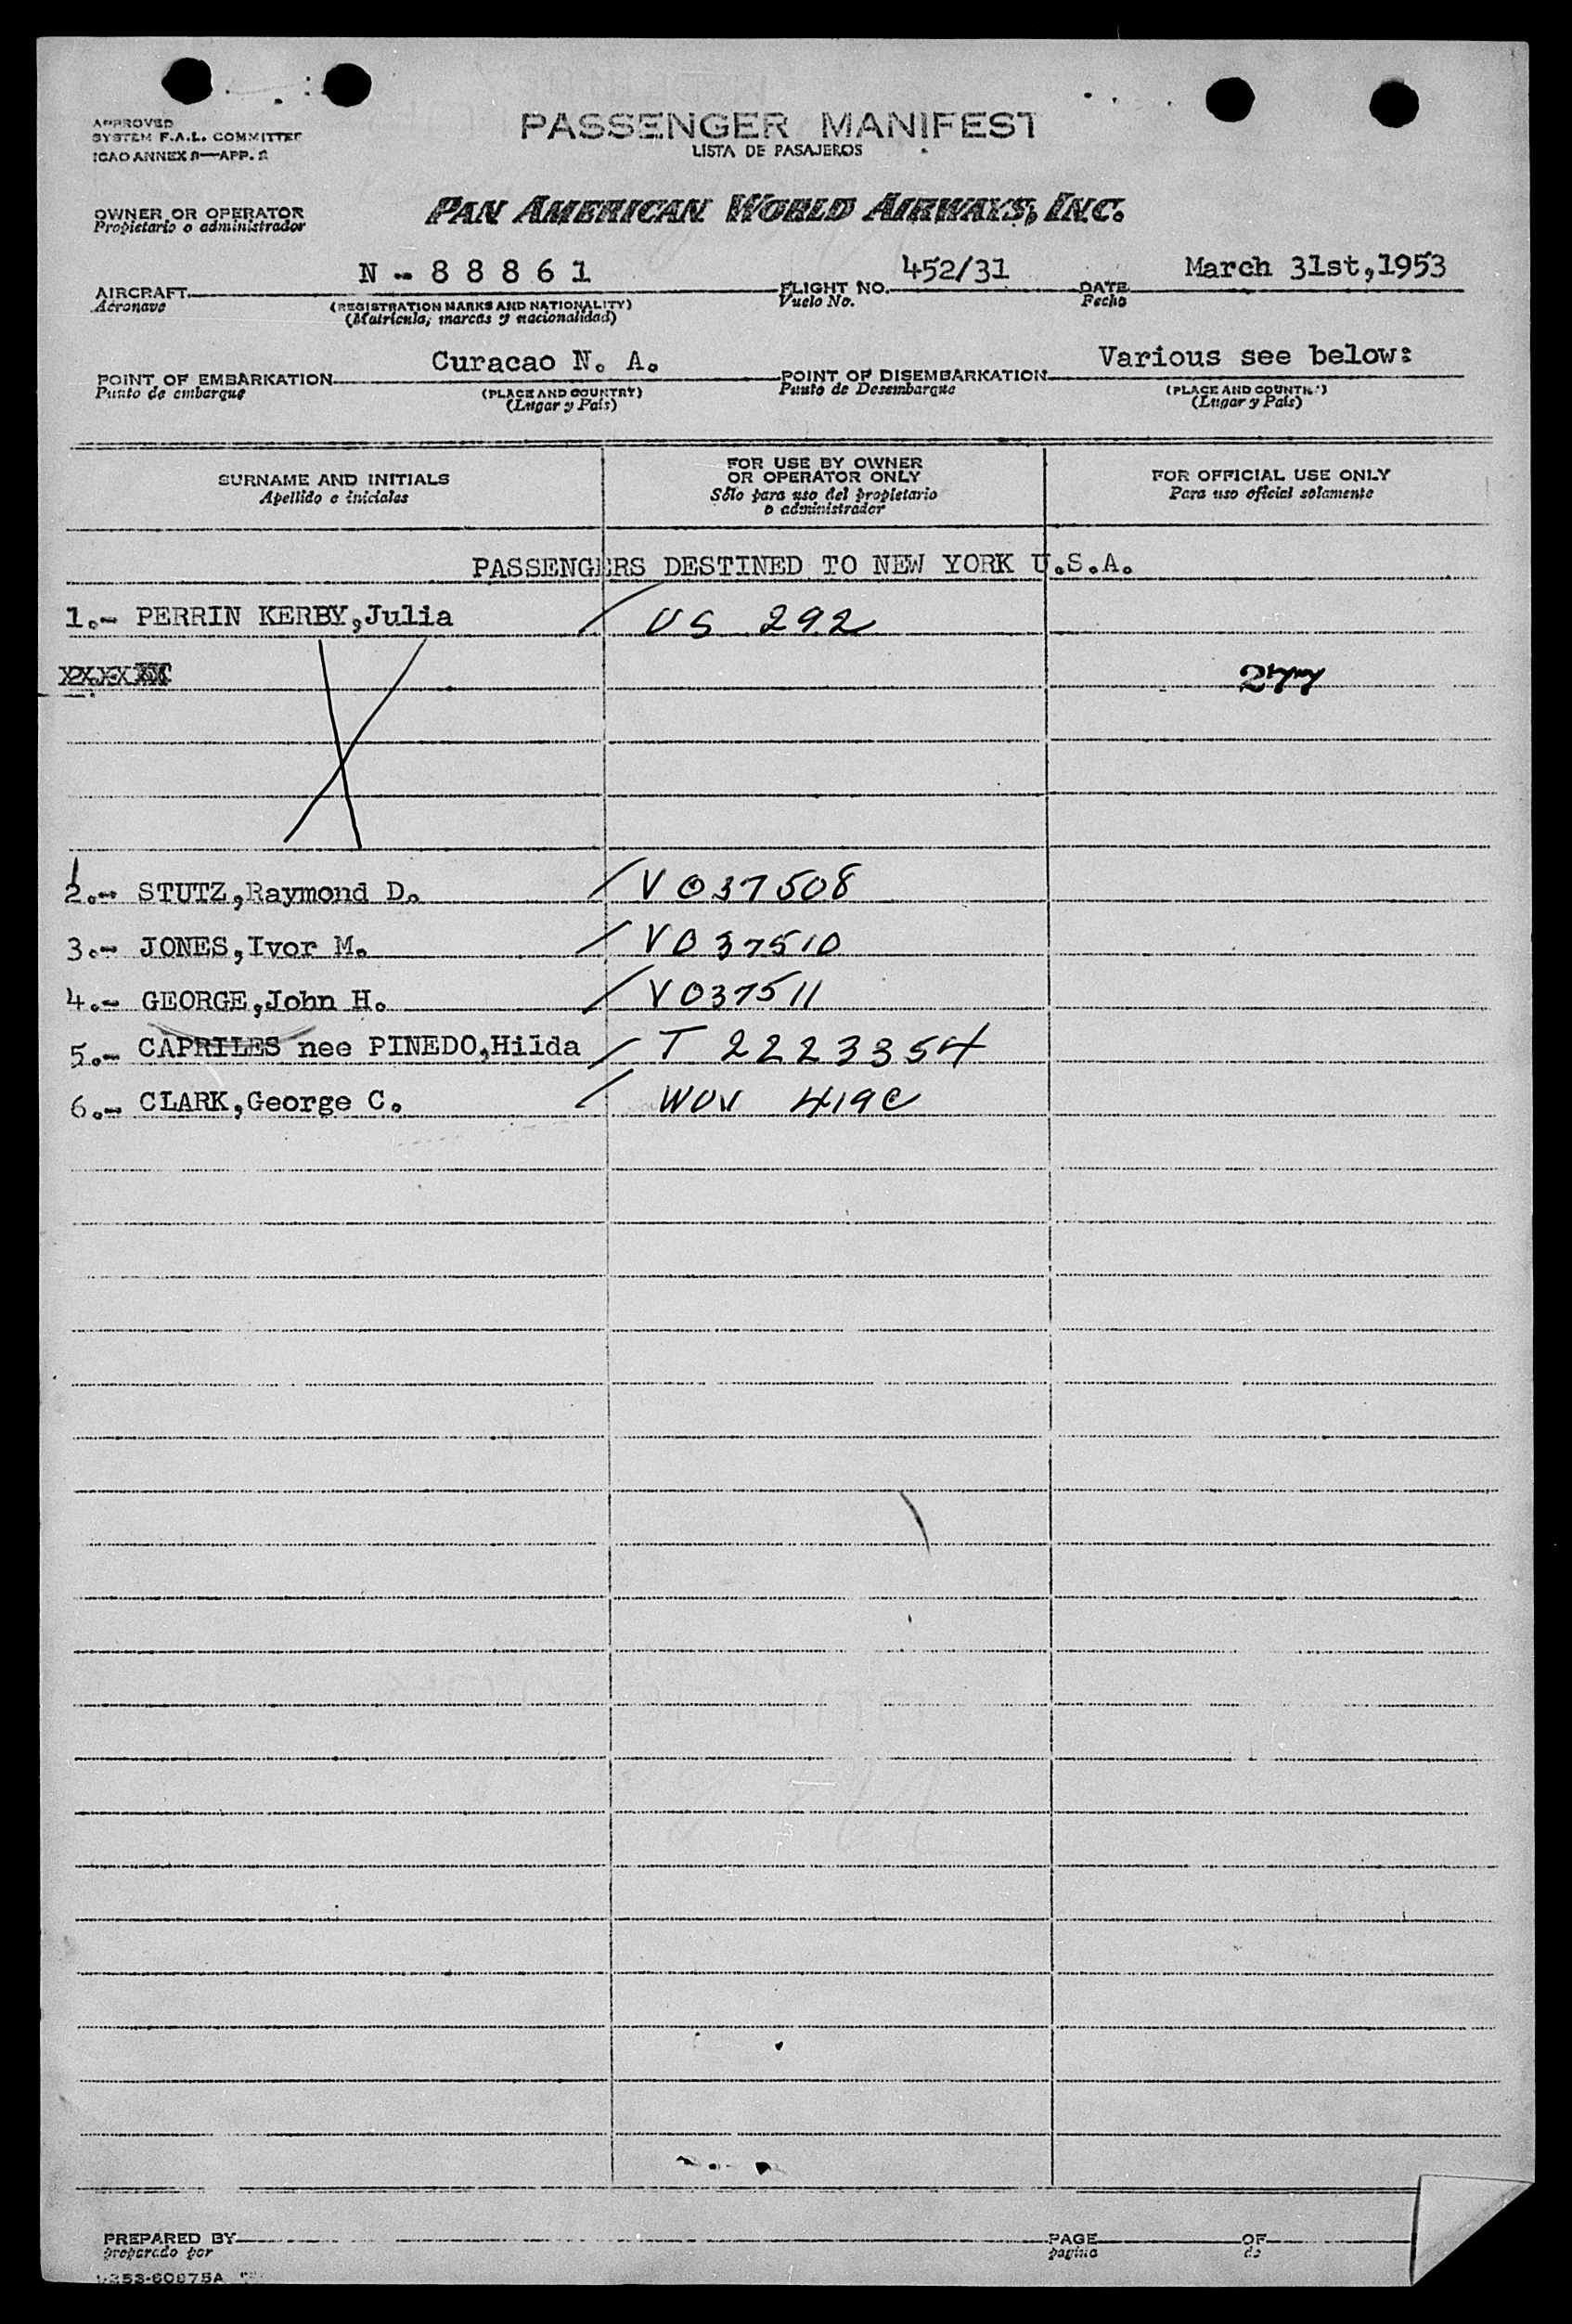 APPROVED
SYSTEM F.A.L. COMMITTEE
ICAO ANNEX 9—APP. 2
PASSENGER MANIFEST
LISTA DE PASAJEROS
OWNER OR OPERATOR
Propietario o administrador
PAN AMERICAN WORLD AIRWAYS, INC.
AIRCRAFT N - 8 8 8 6 1 FLIGHT NO. 452/31 DATE March 31st,1953
Aeronave (REGISTRATION MARKS AND NATIONALITY) Vuelo No. Fecha
(Matricula, marcas y nacionalidad)
POINT OF EMBARKATION Curacao N. A. POINT OF DISEMBARKATION Various see below:
Punto de embarque (PLACE AND COUNTRY) Punto de Desembarque (PLACE AND COUNTRY)
(Lugar y País) (Lugar y País)
SURNAME AND INITIALS
Apellido e iniciales
FOR USE BY OWNER
OR OPERATOR ONLY
Sólo para uso del propietario
o administrador
FOR OFFICIAL USE ONLY
Para uso oficial solamente
PASSENGERS DESTINED TO NEW YORK U.S.A.
1.- PERRIN KERBY,Julia / US 292
2.- STUTZ,Raymond D. / V 037508
3.- JONES,Ivor M. / V037510
4.- GEORGE,John H. / V037511
5.- CAPRILES nee PINEDO,Hilda / T 2223354
6.- CLARK,George C. / 419C
PREPARED BY PAGE OF
preparado por pagina de